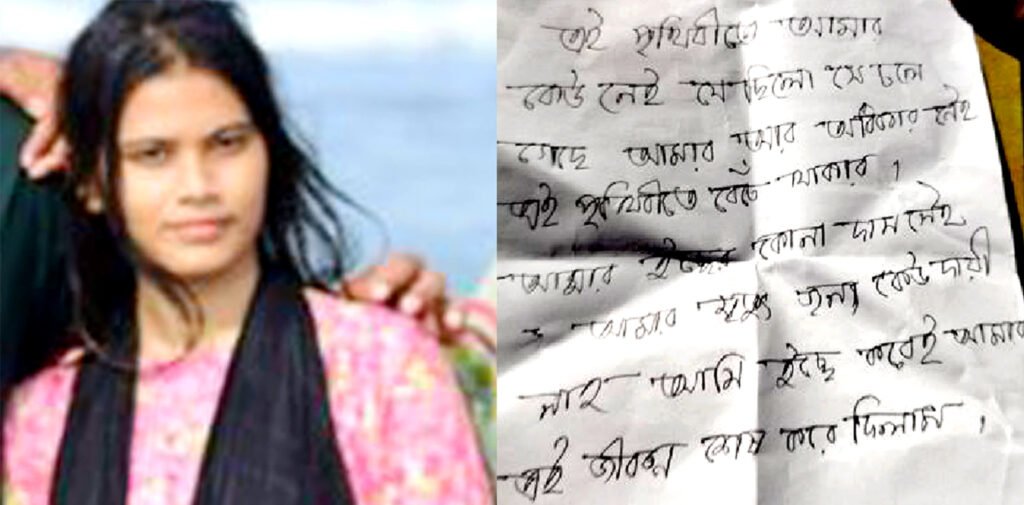 এই পৃথিবীতে আমার
কেউ নেই যে ছিলো সে চলে
গেছে আমার আর অধিকার নেই
এই পৃথিবীতে বেচে থাকার।
আমার ইচ্ছের কোনো দাম নেই
আমার মৃত্যুর জন্য কেউ দায়ী
নাই আমি ইচ্ছে করেই আমার
এই জীবন শেষ করে দিলাম।